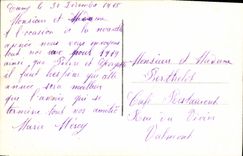 le 30 Décembre 1918
Monsieur et Madame
à l'occasion de la nouvelle
année nous vous envoyons
tout nos pour 1919
ainsi que et Georgette
et faut espérer que cette
année sera meilleur
que l'année qui se
termine tout nos amitiés
Marie
Monsieur et Madame
Berthelot
Café Restaurant
Rue
Valmont